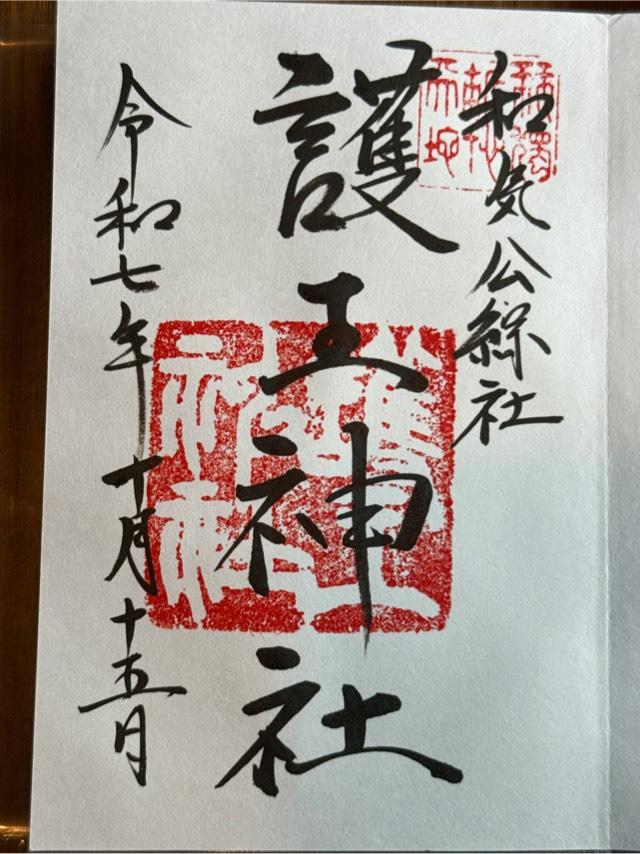 和気公綜社
護王神社
令和七年十月十五日
護王
神社